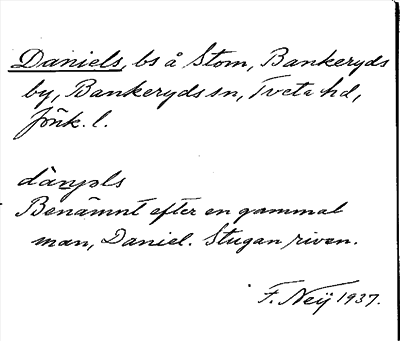 Daniels, bs å Stom, Bankeryds
by, Bankeryds sn, Tveta hd,
Jönk. l.
Benämnt efter en gammal
man, Daniel. Stugan riven.
F. Neij 1937.